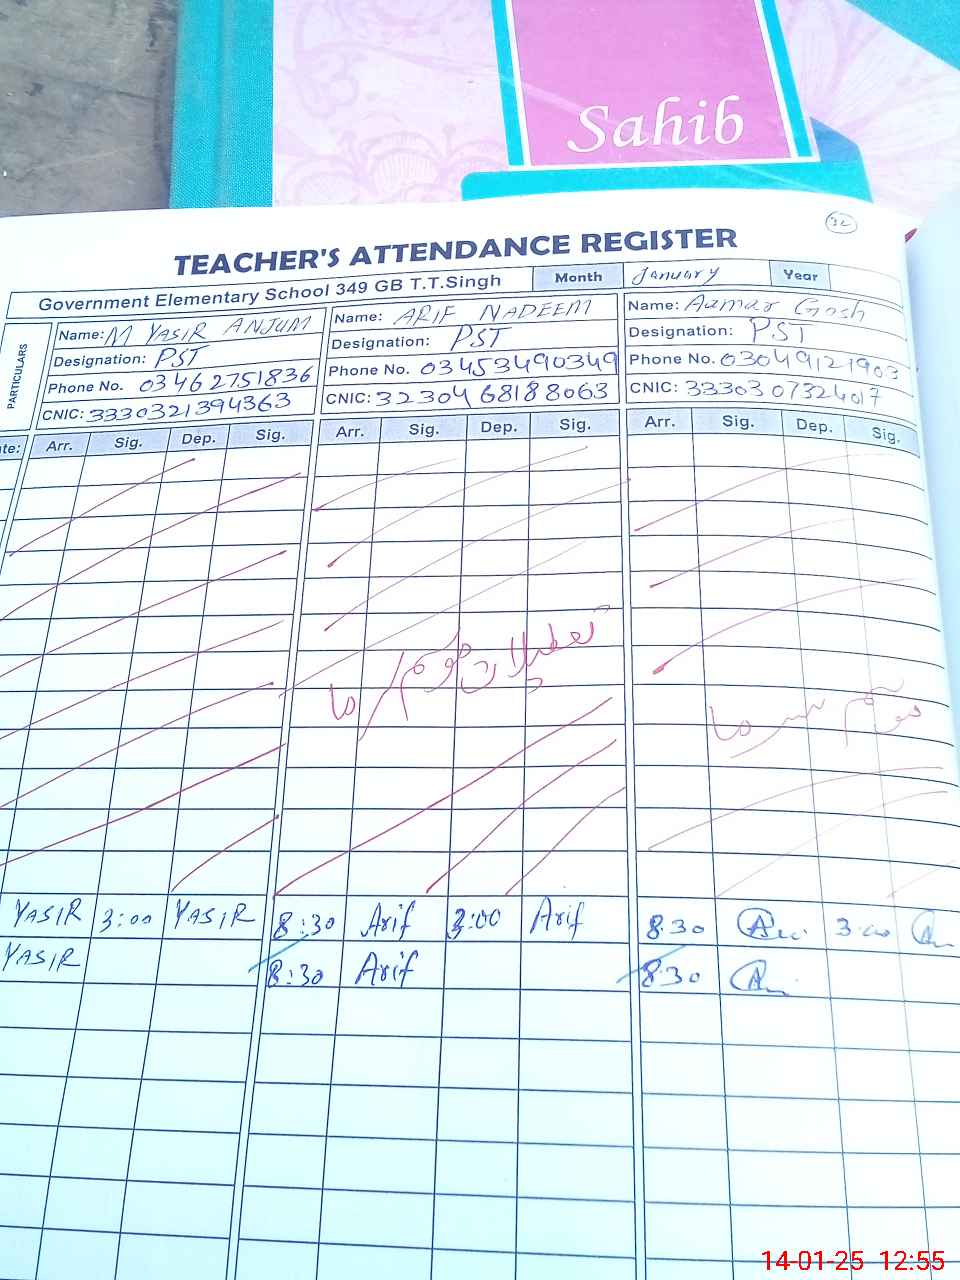 Sahib
32
TEACHER'S ATTENDANCE REGISTER
Government Elementary School 349 GB T.T.Singh Month January Year
PARTICULARS
Name: M YASIR ANJUM
Designation: PST
Phone No. 03462751836
CNIC: 3330321394363
Name: ARIF NADEEM
Designation: PST
Phone No. 03453490349
CNIC: 32304 68188063
Name: Aamar Gosh
Designation: PST
Phone No. 03049121903
CNIC: 33303 07324017
Arr. Sig. Dep. Sig. Arr. Sig. Dep. Sig. Arr. Sig. Dep. Sig.
تعطیلات موسم سرما
موسم سرما
YASIR 3:00 YASIR 8:30 Arif 3:00 Arif 8:30 3:00
YASIR 8:30 Arif 8:30
14-01-25 12:55